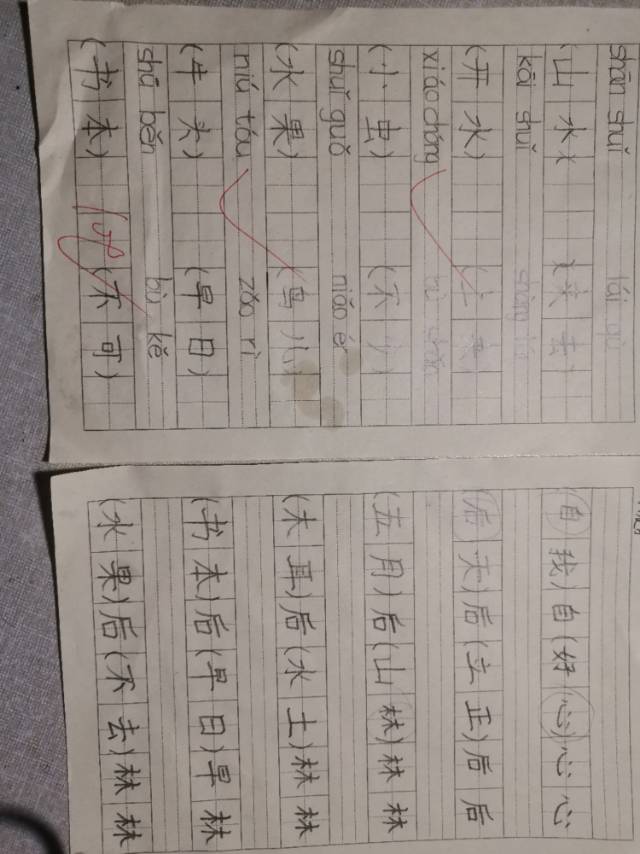 shān shuǐ lái qù
(山水) (来去)
kāi shuǐ
(开水)
xiáo chóng
(小虫) (不少)
shuǐ guǒ niǎo ér
(水果) (鸟儿)
niú tóu zǎo rì
(牛头) (早日)
shū běn bù kě
(书本) (不可)
(自我)自(好心)心心
(后天)后(立正)后后
(五月)后(山林)林林
(木耳)后(水土)林林
(书本)后(早日)早林
(水果)后(不去)林林